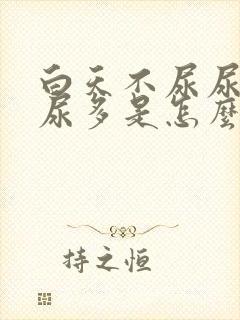 白天不尿尿
尿多是怎麼
持之恒